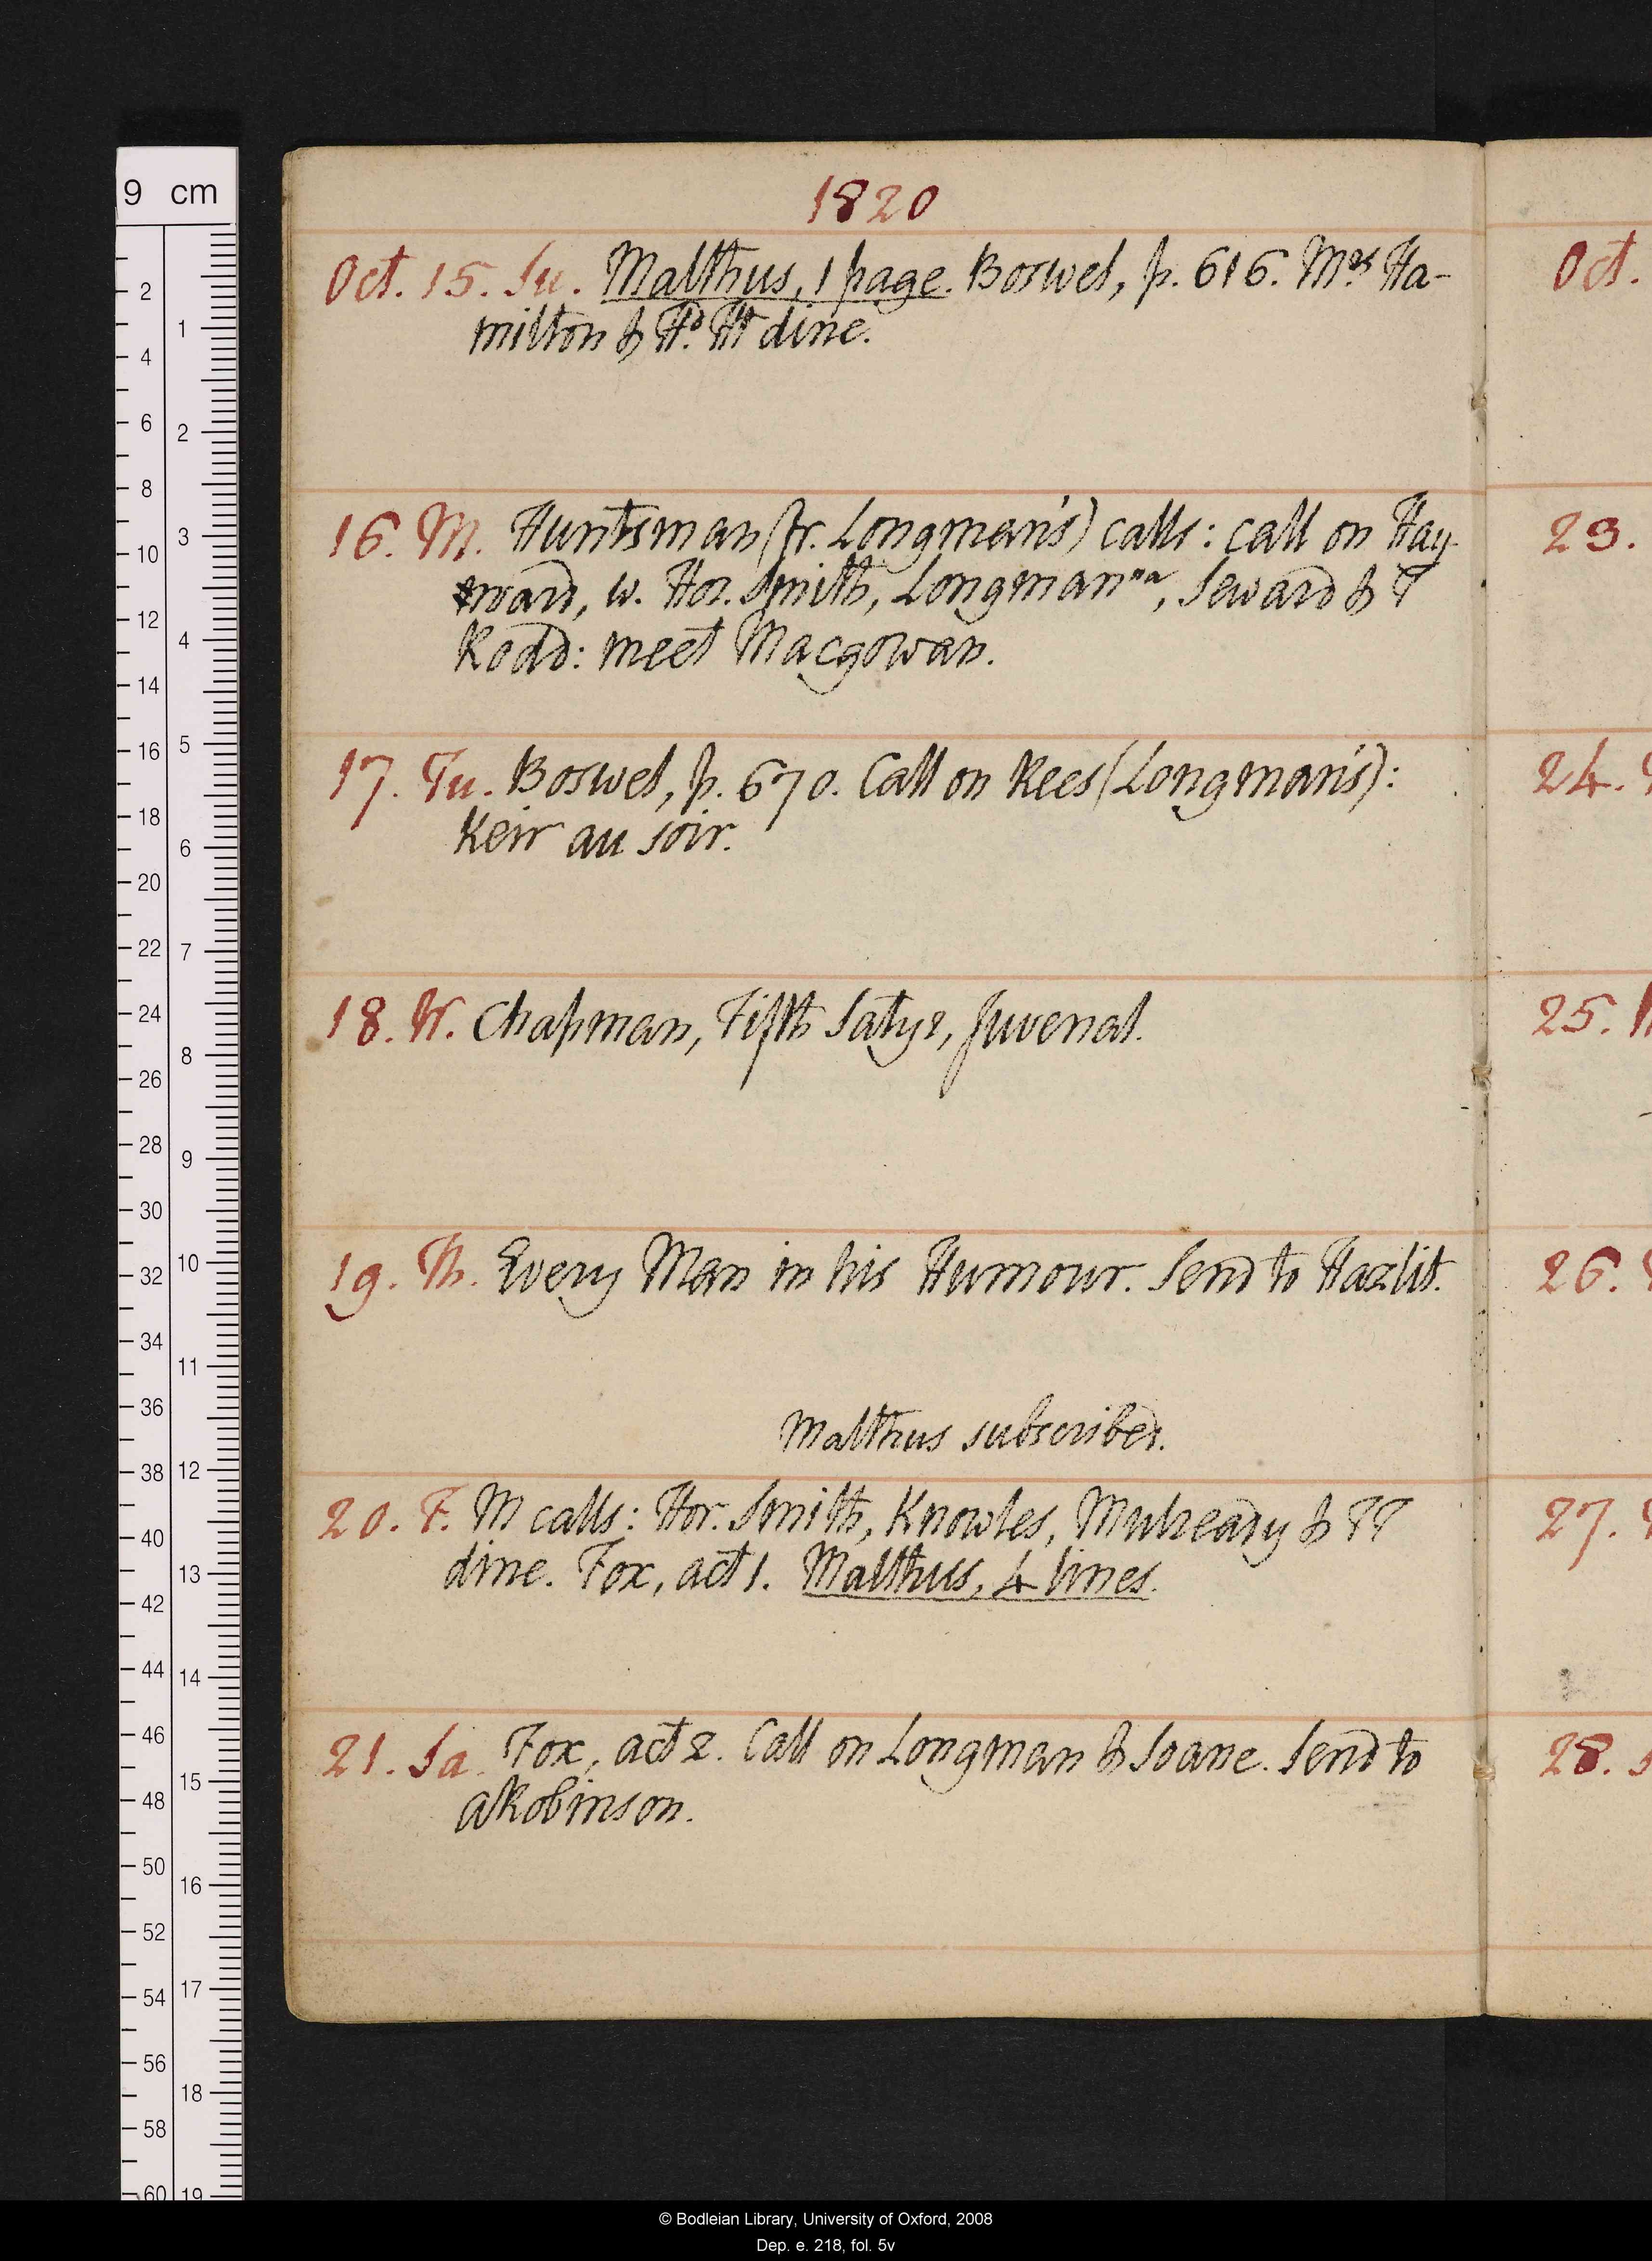 1820
Oct. 15. Su. Malthus, 1 page. Boswel, p. 616. Mrs Ha-
milton & dine.
16. M. Huntsman (fr. Longman's) calls: call on Hay-
ward, w. Hor. Smith, Longman na, Seward & T
Rodd: meet Macgowan.
17. Tu. Boswel, p. 670. Call on Rees (Longman's):
Keir au soir.
18. W. Chapman, Fifth Satyr, Juvenal.
19. Th. Every Man in his Humour. Send to Hazlit.
Malthus subscribed.
20. F. M calls: Hor. Smith, Knowles, Mulready & TT
dine. Fox, act 1. Malthus, 4 lines.
21. Sa. Fox, act 2. Call on Longman & Soane. Send to
A Robinson.
Oct.
23.
24.
25.
26.
27.
28.
9 cm
2
4
6
8
10
12
14
16
18
20
22
24
26
28
30
32
34
36
38
40
42
44
46
48
50
52
54
56
58
60
1
2
3
4
5
6
7
8
9
10
11
12
13
14
15
16
17
18
19
© Bodleian Library, University of Oxford, 2008
Dep. e. 218, fol. 5v